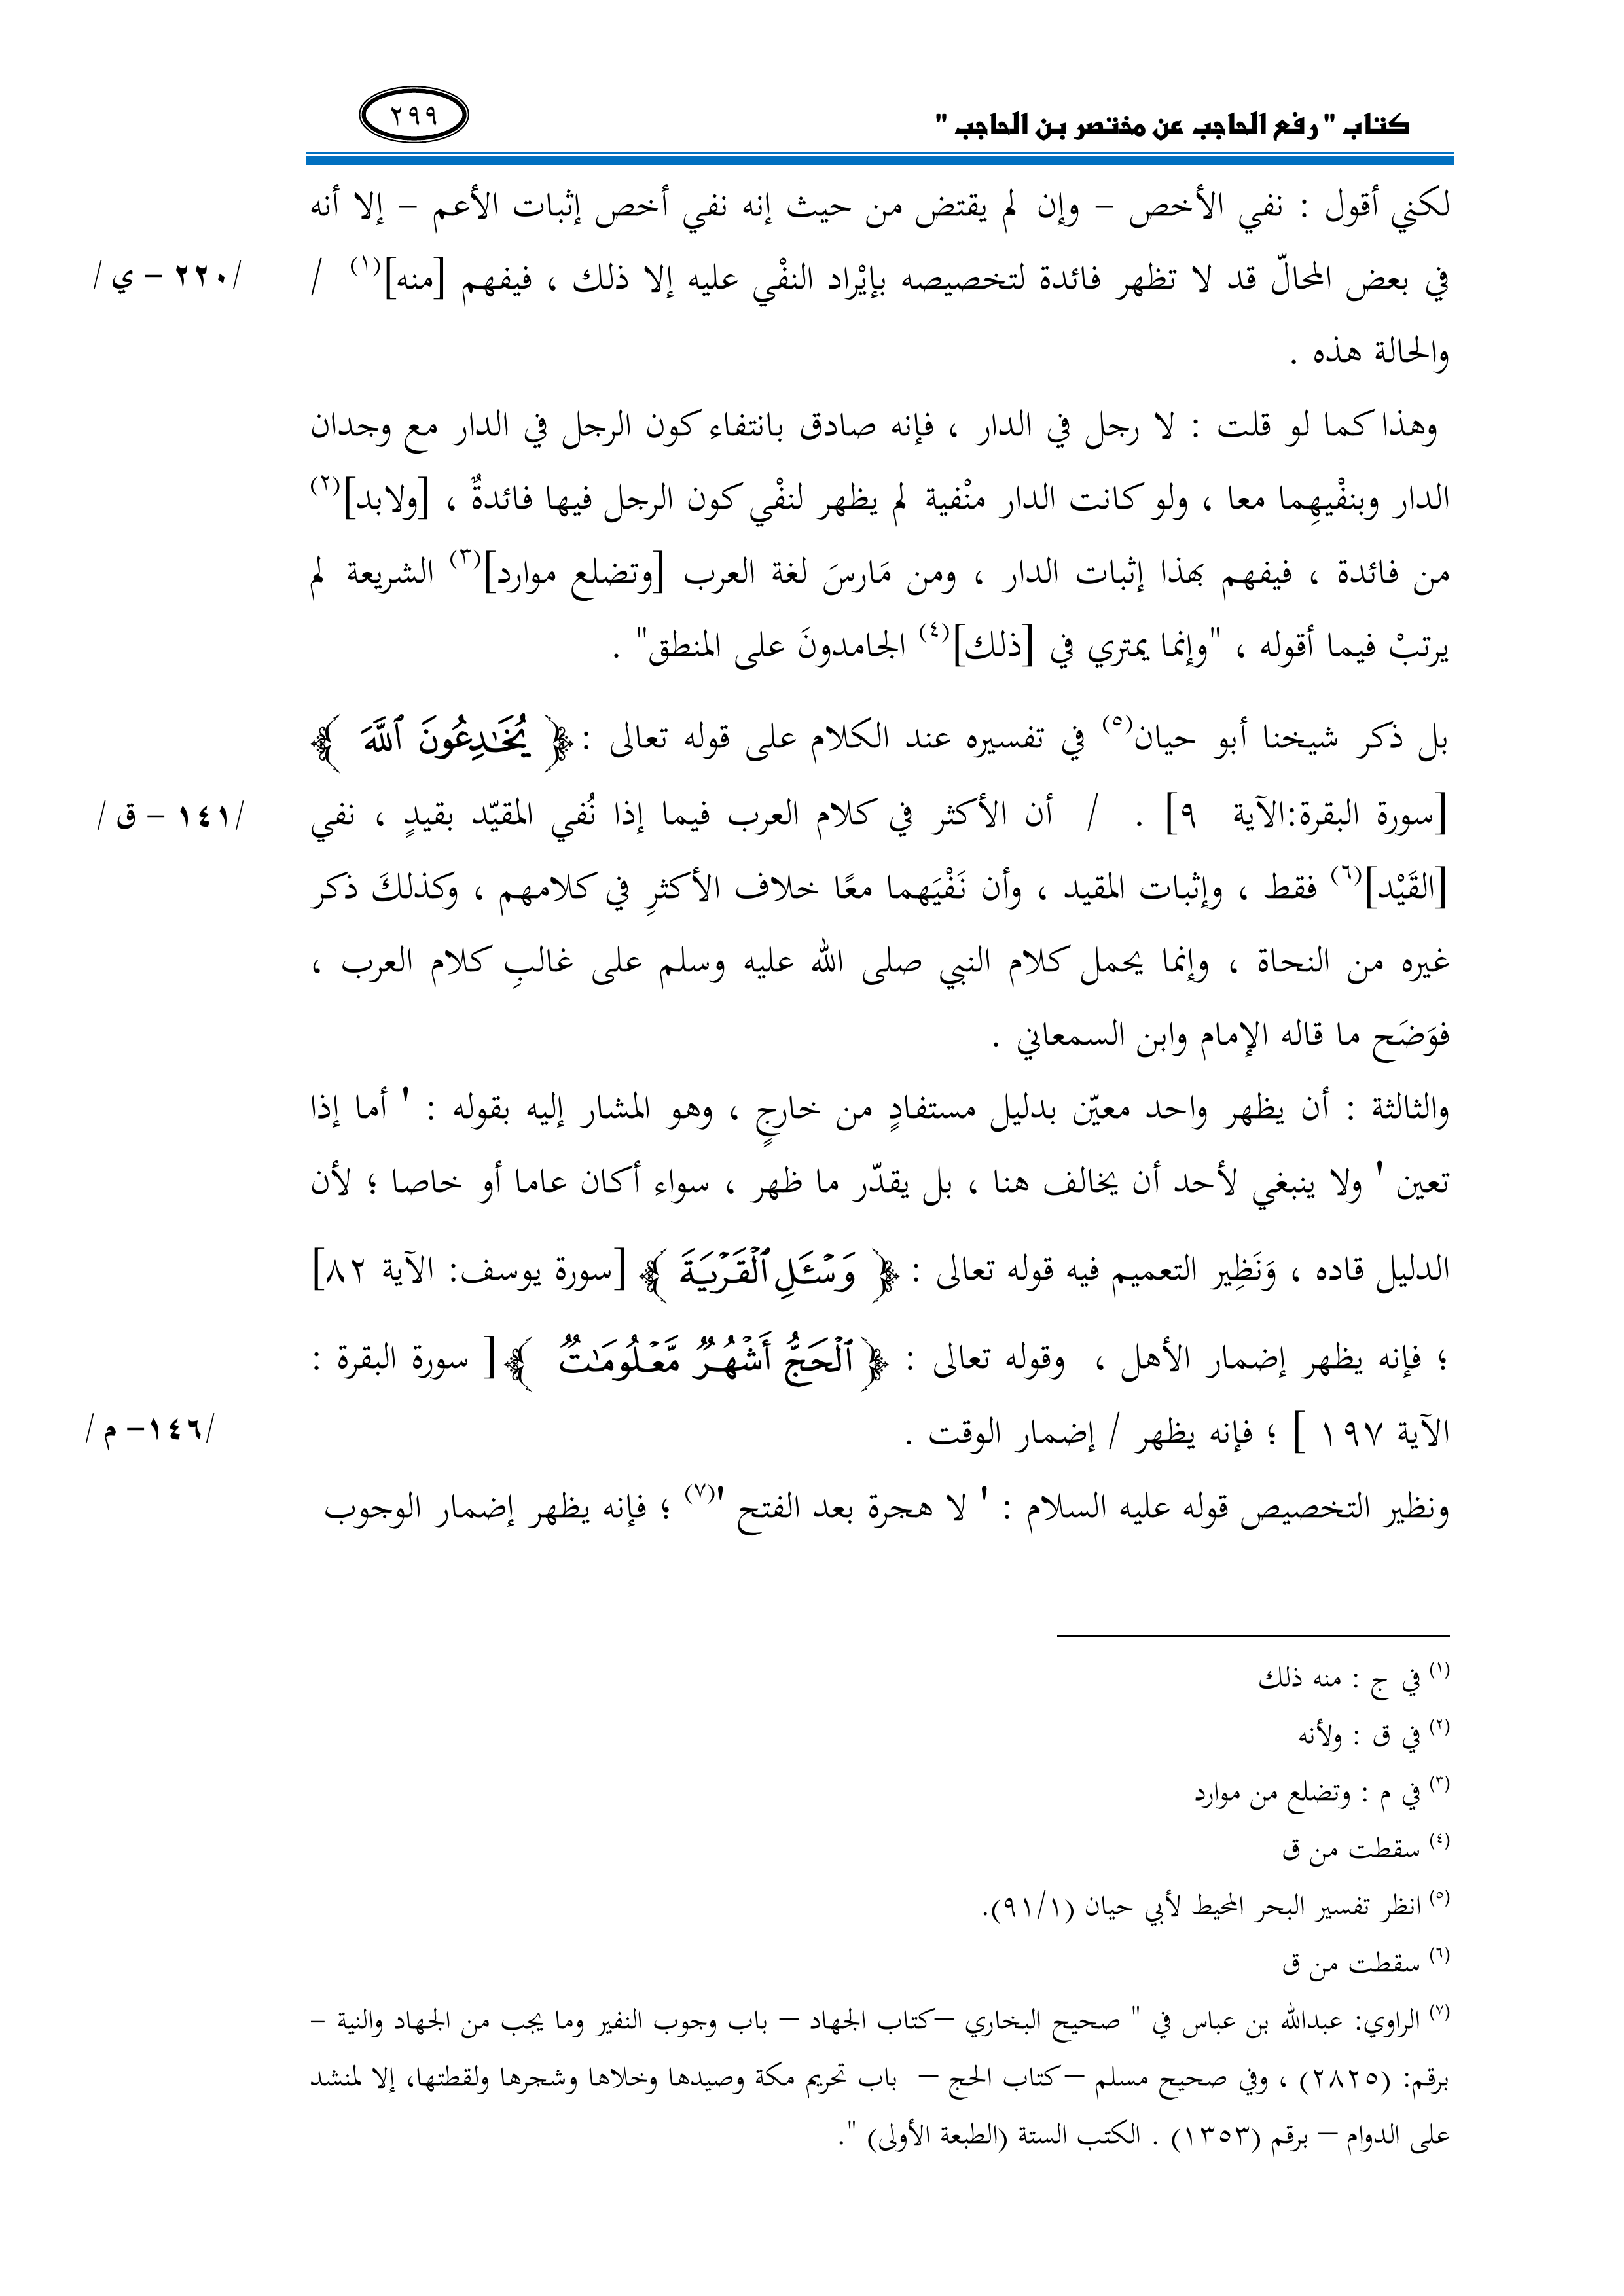 كتاب " رفع الحاجب عن مختصر بن الحاجب "
٢٩٩
لكني أقول : نفي الأخص – وإن لم يقتض من حيث إنه نفي أخص إثبات الأعم – إلا أنه
في بعض المحالّ قد لا تظهر فائدة لتخصيصه بإيْراد النفْي عليه إلا ذلك ، فيفهم [منه](١) /
/٢٢٠ – ي /
والحالة هذه .
وهذا كما لو قلت : لا رجل في الدار ، فإنه صادق بانتفاء كون الرجل في الدار مع وجدان
الدار وبنفْيهِما معا ، ولو كانت الدار منْفية لم يظهر لنفْي كون الرجل فيها فائدةٌ ، [ولابد](٢)
من فائدة ، فيفهم بهذا إثبات الدار ، ومن مَارسَ لغة العرب [وتضلع موارد](٣) الشريعة لم
يرتبْ فيما أقوله ، "وإنما يمتري في [ذلك](٤) الجامدونَ على المنطق" .
بل ذكر شيخنا أبو حيان(٥) في تفسيره عند الكلام على قوله تعالى : ﴿ يُخَٰدِعُونَ ٱللَّهَ ﴾
[سورة البقرة:الآية ٩] . / أن الأكثر في كلام العرب فيما إذا نُفي المقيّد بقيدٍ ، نفي
/١٤١ – ق /
[القَيْد](٦) فقط ، وإثبات المقيد ، وأن نَفْيَهما معًا خلاف الأكثرِ في كلامهم ، وكذلكَ ذكر
غيره من النحاة ، وإنما يحمل كلام النبي صلى الله عليه وسلم على غالبِ كلام العرب ،
فوَضَح ما قاله الإمام وابن السمعاني .
والثالثة : أن يظهر واحد معيّن بدليل مستفادٍ من خارجٍ ، وهو المشار إليه بقوله : ' أما إذا
تعين ' ولا ينبغي لأحد أن يخالف هنا ، بل يقدّر ما ظهر ، سواء أكان عاما أو خاصا ؛ لأن
الدليل قاده ، وَنَظِير التعميم فيه قوله تعالى : ﴿ وَسْـَٔلِ ٱلْقَرْيَةَ ﴾ [سورة يوسف: الآية ٨٢]
؛ فإنه يظهر إضمار الأهل ، وقوله تعالى : ﴿ ٱلْحَجُّ أَشْهُرٌ مَّعْلُومَٰتٌ ﴾ [ سورة البقرة :
الآية ١٩٧ ] ؛ فإنه يظهر / إضمار الوقت .
/١٤٦– م /
ونظير التخصيص قوله عليه السلام : ' لا هجرة بعد الفتح '(٧) ؛ فإنه يظهر إضمار الوجوب
(١) في ج : منه ذلك
(٢) في ق : ولأنه
(٣) في م : وتضلع من موارد
(٤) سقطت من ق
(٥) انظر تفسير البحر المحيط لأبي حيان (٩١/١).
(٦) سقطت من ق
(٧) الراوي: عبدالله بن عباس في " صحيح البخاري –كتاب الجهاد – باب وجوب النفير وما يجب من الجهاد والنية –
برقم: (٢٨٢٥) ، وفي صحيح مسلم –كتاب الحج – باب تحريم مكة وصيدها وخلاها وشجرها ولقطتها، إلا لمنشد
على الدوام – برقم (١٣٥٣) . الكتب الستة (الطبعة الأولى) ".